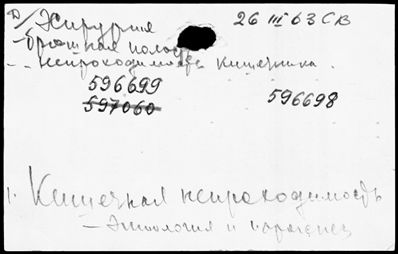 Д/ Хирургия 26 III 63 СВ
- брюшная полость
- - непроходимость кишечника.
596699
597060 596698
1. Кишечная непроходимость
- Этиология и патогенез